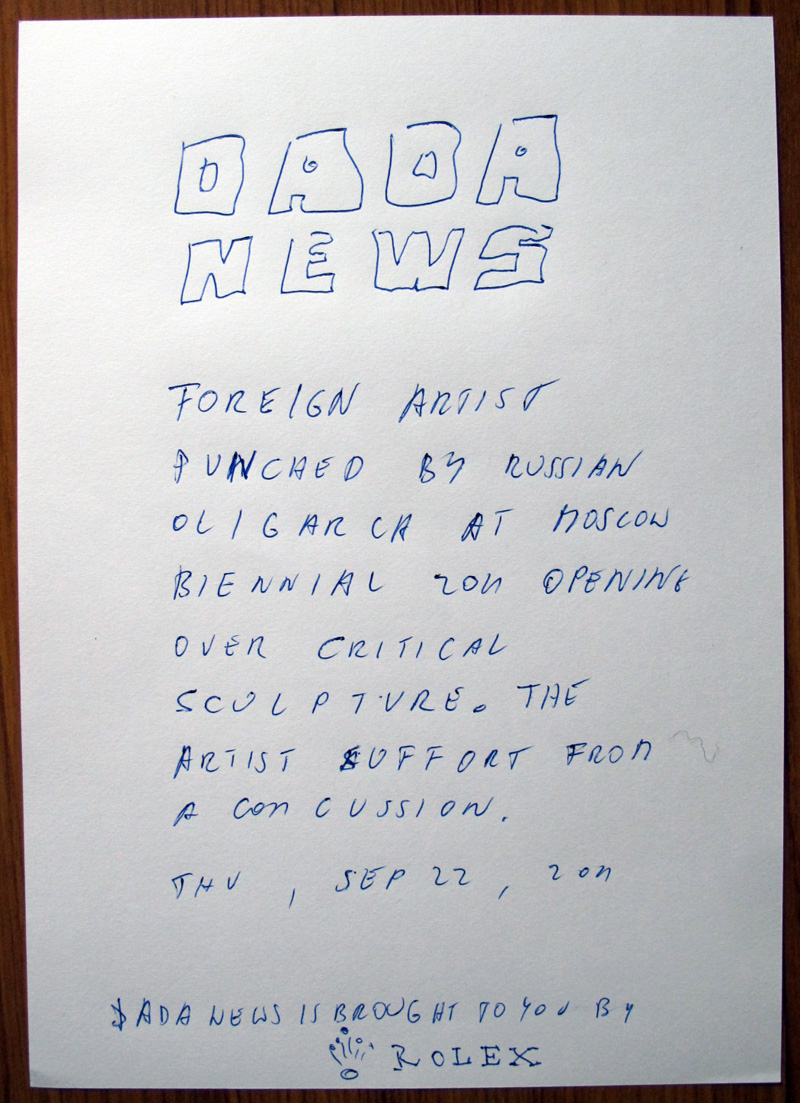 DADA
NEWS
FOREIGN ARTIST
PUNCHED BY RUSSIAN
OLIGARCA AT MOSCOW
BIENNIAL 2011 OPENING
OVER CRITICAL
SCULPTURE. THE
ARTIST SUFFORT FROM
A CONCUSSION.
THU, SEP 22, 2011
DADA NEWS IS BROUGHT TO YOU BY
ROLEX